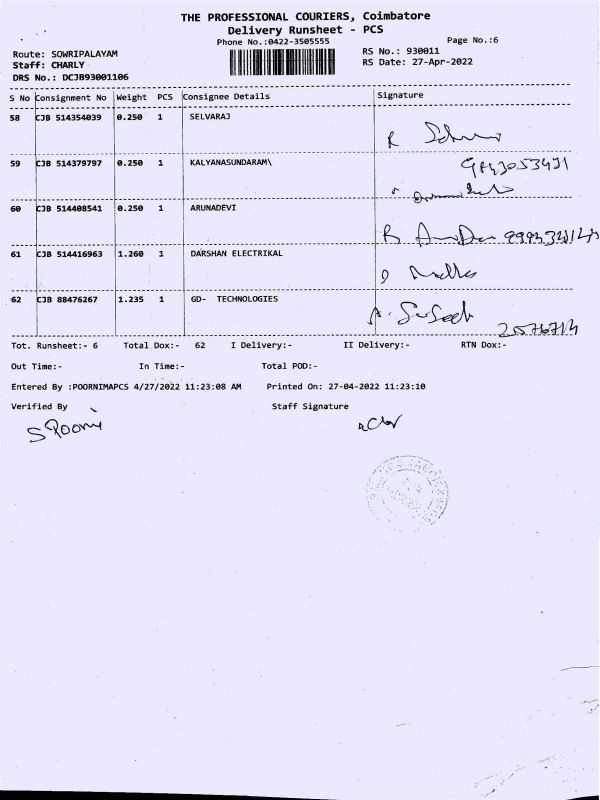 THE PROFESSIONAL COURIERS, Coimbatore
Delivery Runsheet - PCS
Phone No.:0422-3505555
Page No.:6
Route: SOWRIPALAYAM
RS No.: 930011
Staff: CHARLY
RS Date: 27-Apr-2022
DRS No.: DCJB93001106
S No Consignment No Weight PCS Consignee Details Signature
58 CJB 514354039 0.250 1 SELVARAJ
59 CJB 514379797 0.250 1 KALYANASUNDARAM\
60 CJB 514408541 0.250 1 ARUNADEVI
61 CJB 514416963 1.260 1 DARSHAN ELECTRIKAL
62 CJB 88476267 1.235 1 GD- TECHNOLOGIES
Tot. Runsheet:- 6 Total Dox:- 62 I Delivery:- II Delivery:- RTN Dox:-
Out Time:- In Time:- Total POD:-
Entered By :POORNIMAPCS 4/27/2022 11:23:08 AM Printed On: 27-04-2022 11:23:10
Verified By Staff Signature